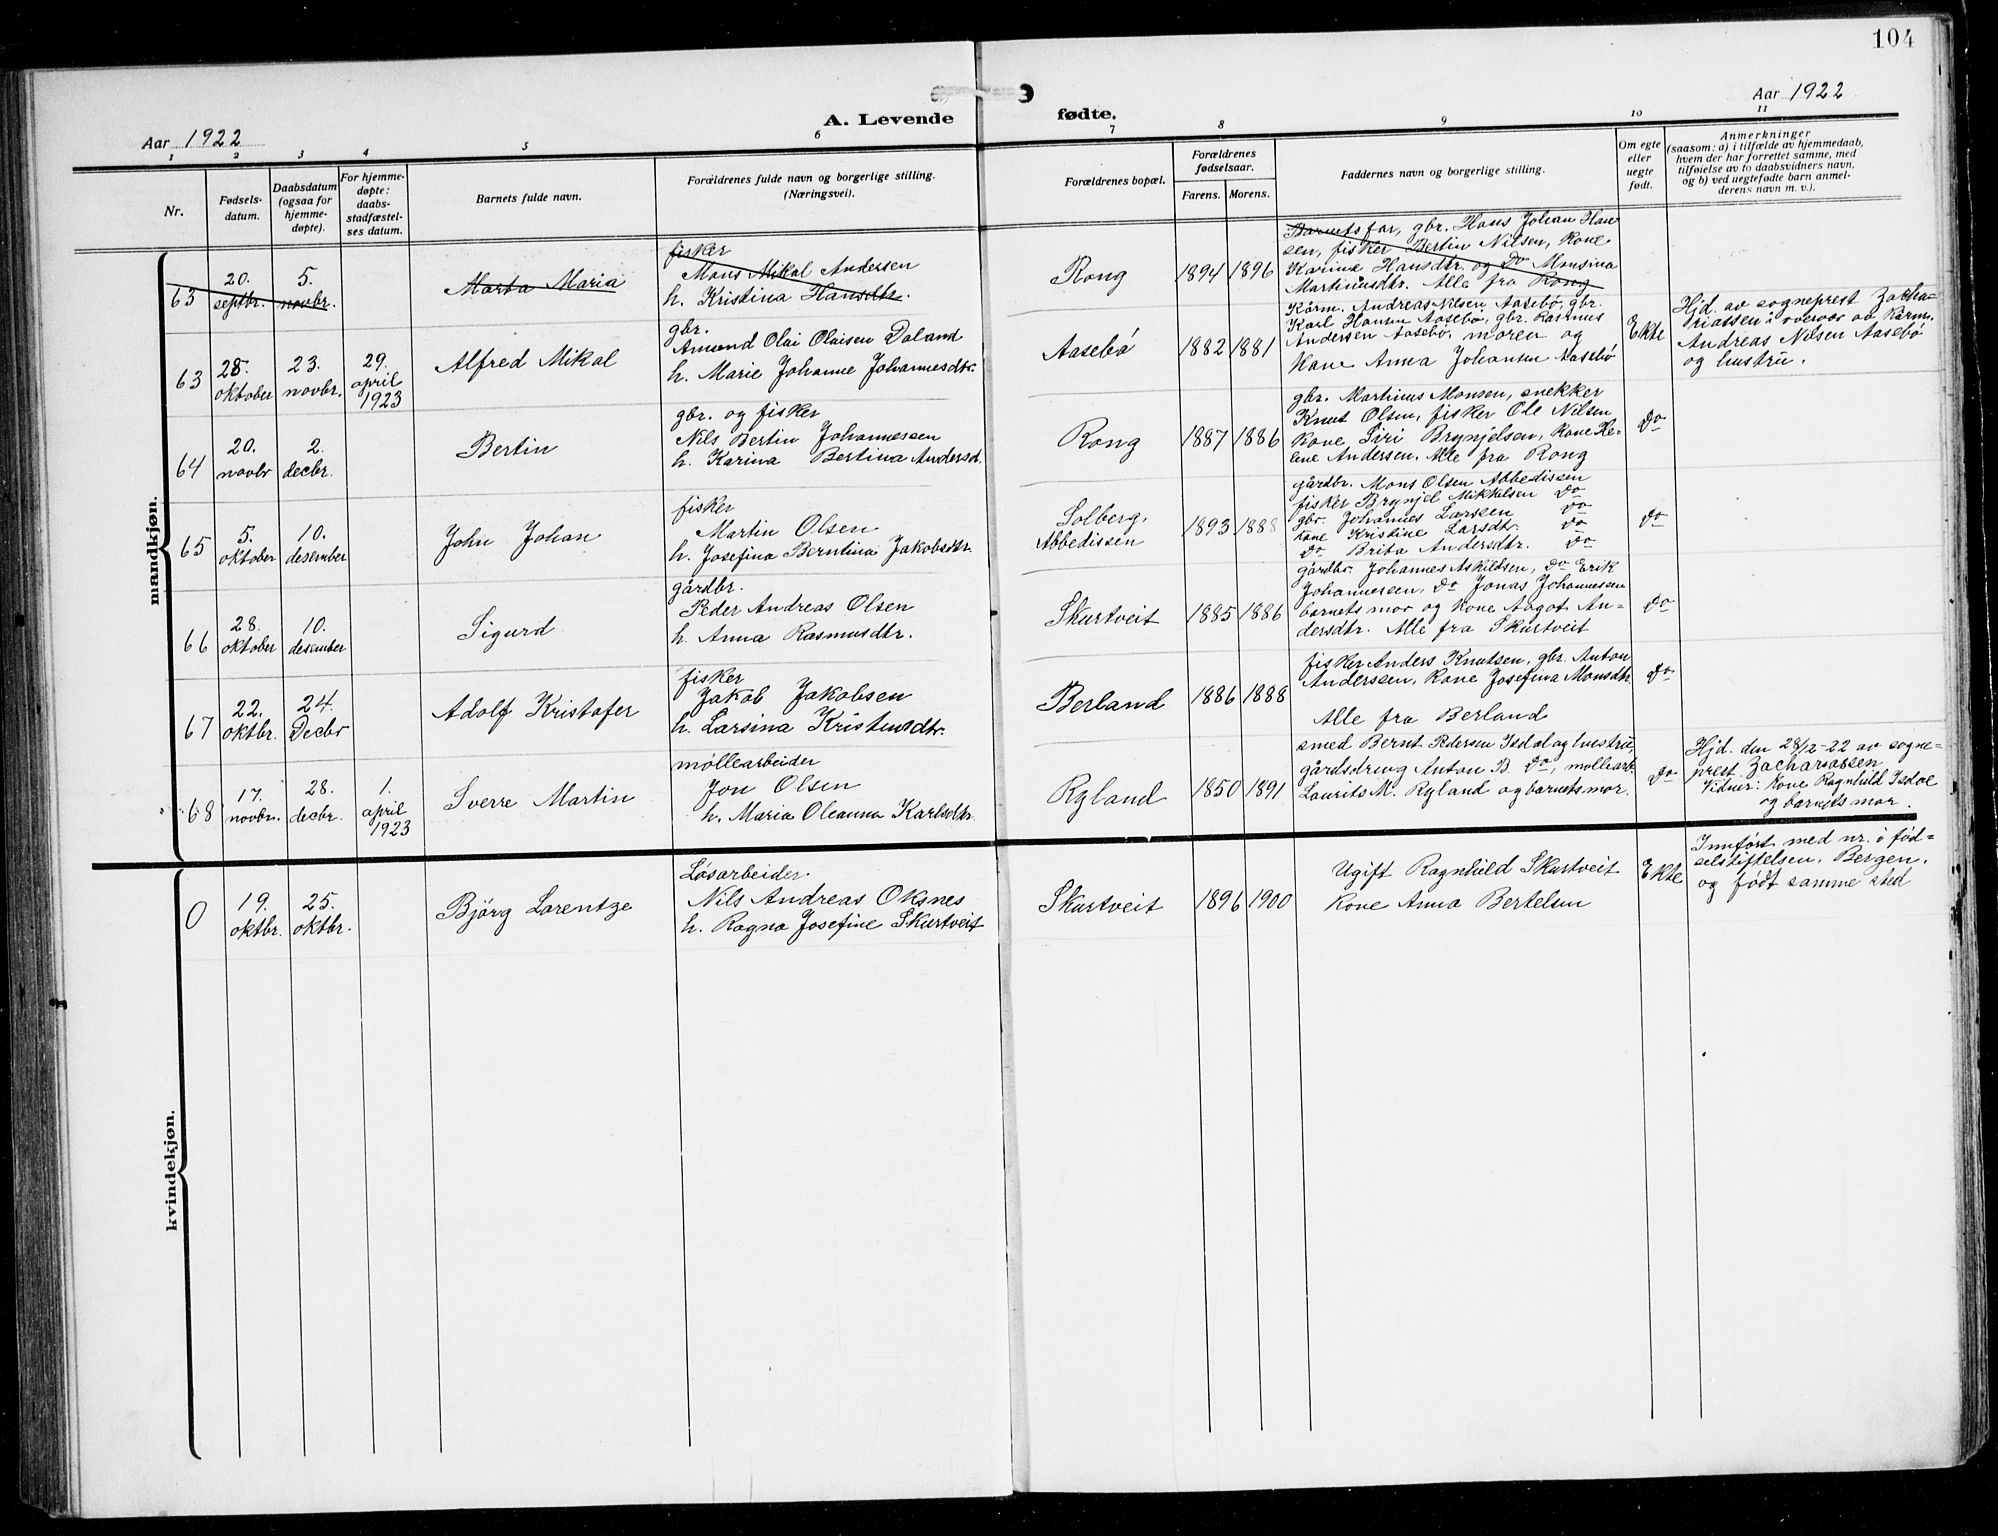 104
Aar 1922
A. Levende fødte.
Aar 1922
1 2 3 4 5 6 7 8 9 10 11
Nr.
Fødsels-
datum.
Daabsdatum
(ogsaa for
hjemme-
døpte).
For hjemme-
døpte:
daabs-
stadfæstel-
ses datum.
Barnets fulde navn.
Forældrenes fulde navn og borgerlige stilling.
(Næringsvei).
Forældrenes bopæl.
Forældrenes
fødselsaar.
Farens. Morens.
Faddernes navn og borgerlige stilling.
Om egte
eller
uegte
født.
Anmerkninger
(saasom: a) i tilfælde av hjemmedaab,
hvem der har forrettet samme, med
tilføielse av to daabsvidners navn,
og b) ved uegtefødte barn anmel-
derens navn m. v.).
mandkjøn.
63
20.
septbr.
5.
novbr.
Marta Maria
fisker
Mons Mikal Andersen
h. Kristina Hansdtr.
Rong
1894 1896
Barnets far, gbr. Hans Johan Han
sen, fisker Bertin Nilsen, Kone
Karina Hansdtr. og do Monsina
Martinusdtr. Alle fra Rong
63
25.
oktober
23.
novbr.
29.
april
1923
Alfred Mikal
gbr.
Amund Olai Olaisen Daland
h. Marie Johanne Johannesdtr.
Aasebø
1882 1881
Kårm. Andreas Nilsen Aasebø, gbr.
Karl Hansen Aasebø, gbr. Rasmus
Andersen Aasebø, moren og
Kone Anna Johansen Aasebø
Ekte
Hjd. av sogneprest Zacha-
riassen i overvær av Kårm.
Andreas Nilsen Aasebø
og hustru.
64
20.
novbr
2.
decbr.
Bertin
gbr. og fisker
Nils Bertin Johannessen
h. Karina Bertina Andersd.
Rong
1887 1886
gbr. Martinus Monsen, snekker
Knut Olsen, fisker Ole Nilsen
Kone Siri Brynjelsen, Kone He-
lene Andersen. Alle fra Rong
do
65
5.
oktober
10.
desember
John Johan
fisker
Martin Olsen
h. Josefina Berntina Jakobsdtr.
Solberg,
Abbedissen
1893 1888
gårdbr. Mons Olsen Abbedissen
fisker Brynjel Mikkelsen do
gbr. Johannes Larssen do
Kone Kristine Larsdtr. do
do Brita Andersdtr. do
do
66
28.
oktober
10.
desember
Sigurd
gårdbr.
Peder Andreas Olsen
h. Anna Rasmusdtr.
Skurtveit
1885 1886
gårdbr. Johannes Askildsen, do Erik
Johannessen, do Jonas Johannesen
barnets mor og Kone Aagot An-
dersdtr. Alle fra Skurtveit
do
67
22.
oktbr.
24.
Decbr
Adolf Kristofer
fisker
Jakob Jakobsen
h. Larsina Kristensdtr.
Berland
1886 1888
fisker Anders Knutsen, gbr. Anton
Anderssen, Kone Josefina Monsdtr.
Alle fra Berland
do
68
17.
novbr.
28.
decbr.
1.
april
1923
Sverre Martin
møllearbeider
Jon Olsen
h. Maria Oleanna Karlsdtr.
Ryland
1850 1891
smed Bernt Pedersen Isdal og hustru,
gårdsdreng Anton B. do, møllearb.
Laurits M. Ryland og barnets mor.
do
Hjd. den 28/12-22 av sogne-
prest Zachariassen
Vidner: Kone Ragnhild Isdal
og barnets mor.
kvindekjøn.
0
19.
oktbr.
25.
oktbr.
Bjørg Lorentze
Løsarbeider
Nils Andreas Oksnes
h. Ragna Josefine Skurtveit
Skurtveit
1896 1900
Ugift Ragnhild Skurtveit
Kone Anna Bertelsen
Ekte
Innført med nr. i fød-
selstiftelsen, Bergen,
og født samme sted